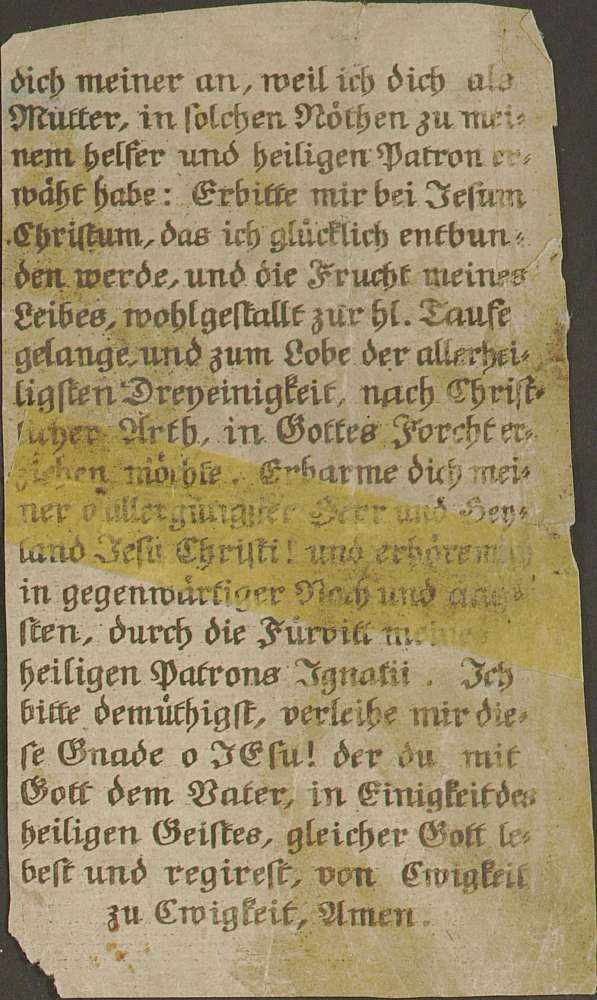 dich meiner an, weil ich dich als
Mutter, in solchen Nöthen zu mei-
nem helfer und heiligen Patron er-
wäht habe: Erbitte mir bei Jesum
Christum, das ich glücklich entbun-
den werde, und die Frucht meines
Leibes, wohlgestallt zur hl. Taufe
gelange, und zum Lobe der allerhei-
ligsten Dreyeinigkeit, nach Christ-
licher Arth, in Gottes Forcht er-
ziehen möchte. Erbarme dich mei-
ner o allergütigster Herr und Hey-
land Jesu Christi! und erhöre mich
in gegenwärtiger Noth und äng-
sten, durch die Fürbitt meines
heiligen Patrons Ignatii. Ich
bitte demüthigst, verleihe mir die-
se Gnade o JEsu! der du mit
Gott dem Vater, in Einigkeit des
heiligen Geistes, gleicher Gott le-
best und regirest, von Ewigkeit
zu Ewigkeit, Amen.